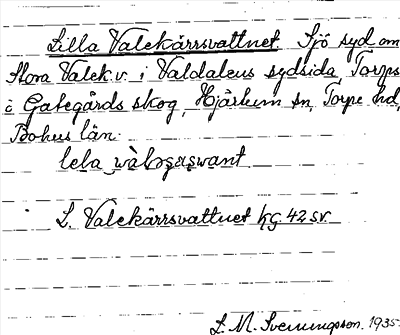 Lilla Valekärrsvattnet Sjö syd om
Stora Valek.v. i Valdalens sydsida, Torps
o Gategårds skog, Hjärtum sn, Torpe hd,
Bohus län.
lela
L. Valekärrsvattnet kg. 42 sv.
L. M. Svenungsson. 1935